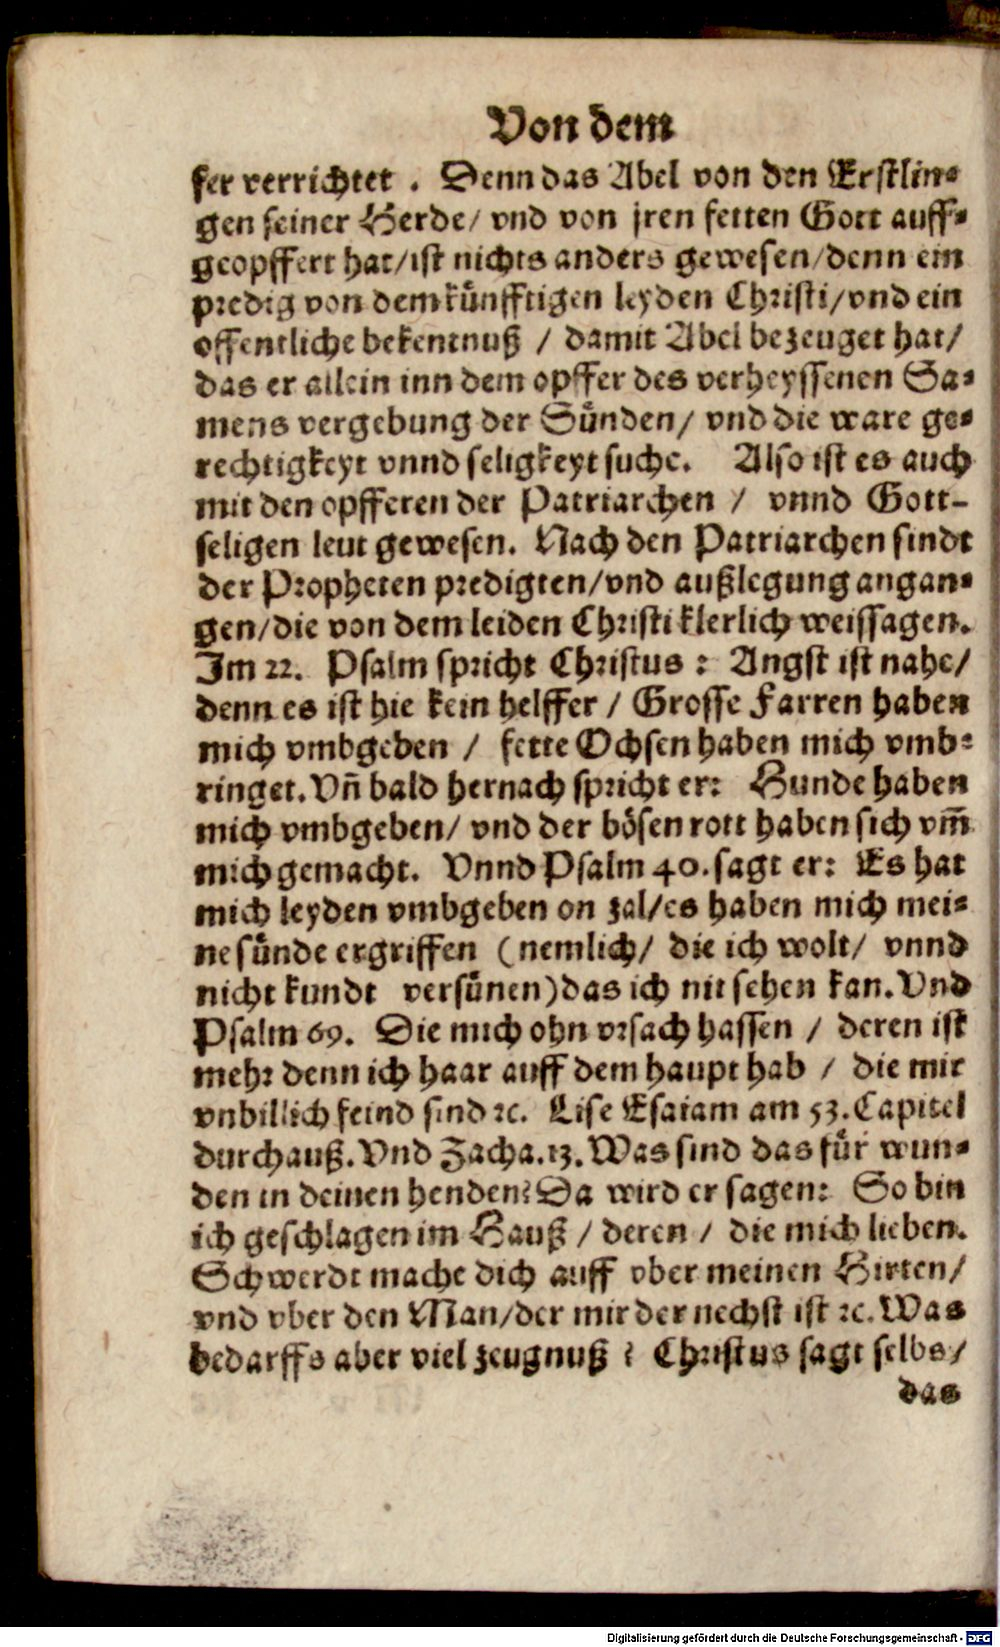 Von dem
fer verrichtet . Denn das Abel von den Erstlin⸗
gen seiner Herde/ vnd von jren fetten Gott auff⸗
geopffert hat/ist nichts anders gewesen/denn ein
predig von dem künfftigen leyden Christi/vnd ein
offentliche bekentnuß / damit Abel bezeuget hat/
das er allein inn dem opffer des verheyssenen Sa⸗
mens vergebung der Sünden/ vnd die ware ge⸗
rechtigkeyt vnnd seligkeyt suche. Also ist es auch
mit den opfferen der Patriarchen / vnnd Gott-
seligen leut gewesen. Nach den Patriarchen sindt
der Propheten predigten/vnd außlegung angan⸗
gen/die von dem leiden Christi klerlich weissagen.
Im 22. Psalm spricht Christus : Angst ist nahe/
denn es ist hie kein helffer / Grosse Farren haben
mich vmbgeben / fette Ochsen haben mich vmb⸗
ringet. Vn̄ bald hernach spricht er: Hunde haben
mich vmbgeben/ vnd der bösen rott haben sich vm̄
mich gemacht. Vnnd Psalm 40. sagt er: Es hat
mich leyden vmbgeben on zal/es haben mich mei⸗
ne sünde ergriffen (nemlich/ die ich wolt/ vnnd
nicht kundt versünen)das ich nit sehen kan. Vnd
Psalm 69. Die mich ohn vrsach hassen / deren ist
mehr denn ich haar auff dem haupt hab / die mir
vnbillich feind sind ꝛc. Lise Esaiam am 53. Capitel
durchauß. Vnd Zacha. 13. Was sind das für wun⸗
den in deinen henden? Da wird er sagen: So bin
ich geschlagen im Hauß / deren / die mich lieben.
Schwerdt mache dich auff vber meinen Hirten/
vnd vber den Man/der mir der nechst ist ꝛc. Was
bedarffs aber viel zeugnuß ? Christus sagt selbs/
das
Digitalisierung gefördert durch die Deutsche Forschungsgemeinschaft - DFG